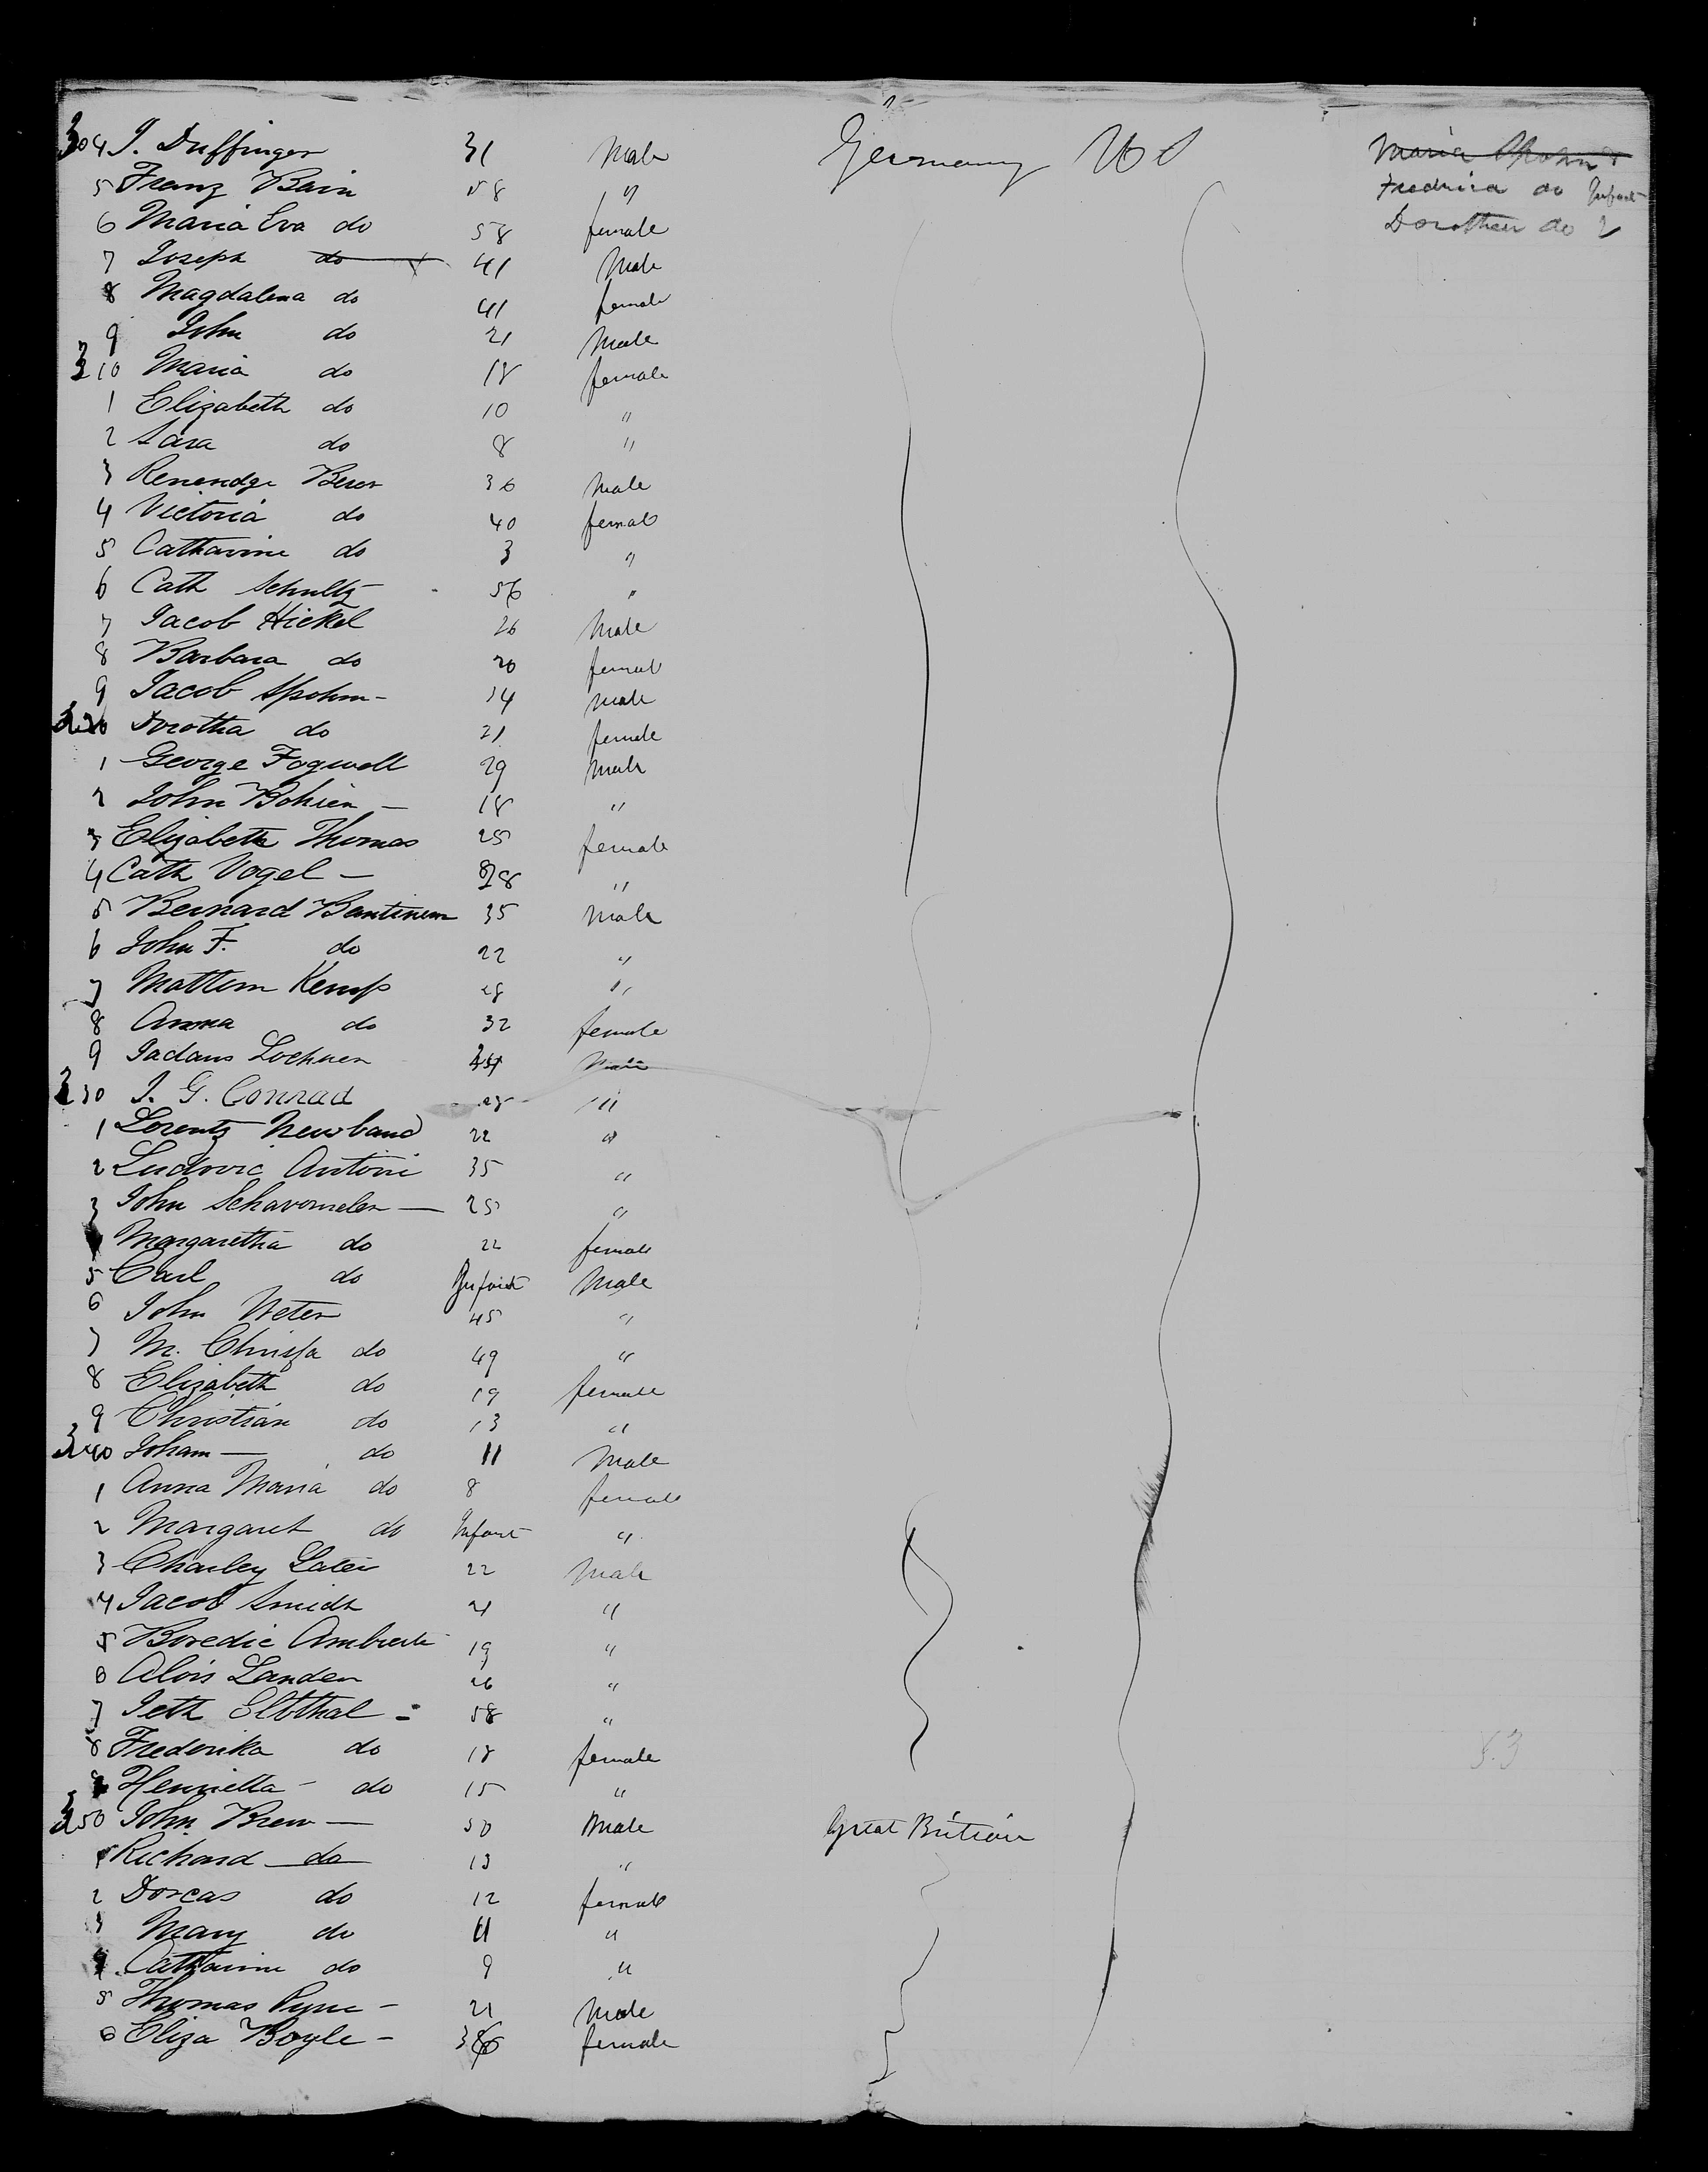 304 J. Duffinger 31 Male Germany U S
5 Franz Bain 58 "
6 Maria Eva do 58 female
7 Joseph do 41 Male
8 Magdalena do 41 female
9 John do 21 Male
310 Maria do 18 female
1 Elizabeth do 10 "
2 Sara do 8 "
3 36 Male
4 Victoria do 40 female
5 Catharine do 3 "
6 Cath Schultz 56 "
7 Jacob Hickel 26 Male
8 Barbara do 20 female
9 Jacob Spohm - 34 Male
320 Dorotha do 21 female
1 George Fogwell 29 Male
2 John Bohien - 18 "
3 Elizabeth Thomas 25 female
4 Cath Vogel - 28 "
5 Bernard Bantinem 35 Male
6 John F. do 22 "
7 Mattom Kemp 28 "
8 Anna do 32 female
9 Lochner Male
330 J. G. Conrad "
1 Lorentz Newband 22 "
2 Ludovic Antoni 35 "
3 John Schavomeler - 25 "
Margaretha do 22 female
5 Carl do Infant Male
6 John Weter 45 "
7 M. do 49 "
8 Elizabeth do 19 female
9 Christian do 13 "
340 Joham - do 11 Male
1 Anna Maria do 8 female
2 Margaret do Infant "
3 Charley Latei 22 Male
4 Jacob Smidt 21 "
5 19 "
6 Alois Landen 26 "
7 Jeth Elbthal - 58 "
8 Frederika do 18 female
9 Henrietta - do 15 "
350 John Brew - 50 Male Great Britain
1 Richard do 13 "
2 Dorcas do 12 female
3 Mary do 11 "
4 Catharine do 9 "
5 Thomas Pyne - 21 Male
6 Eliza Boyle - 36 female
Maria Spohm
Fredrica do Infant
Dorothea do 2
53